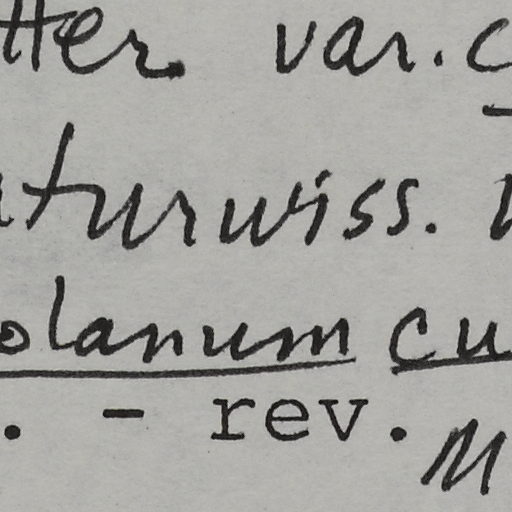 tter var. c
aturwiss. V
olanum cu
. - rev. M